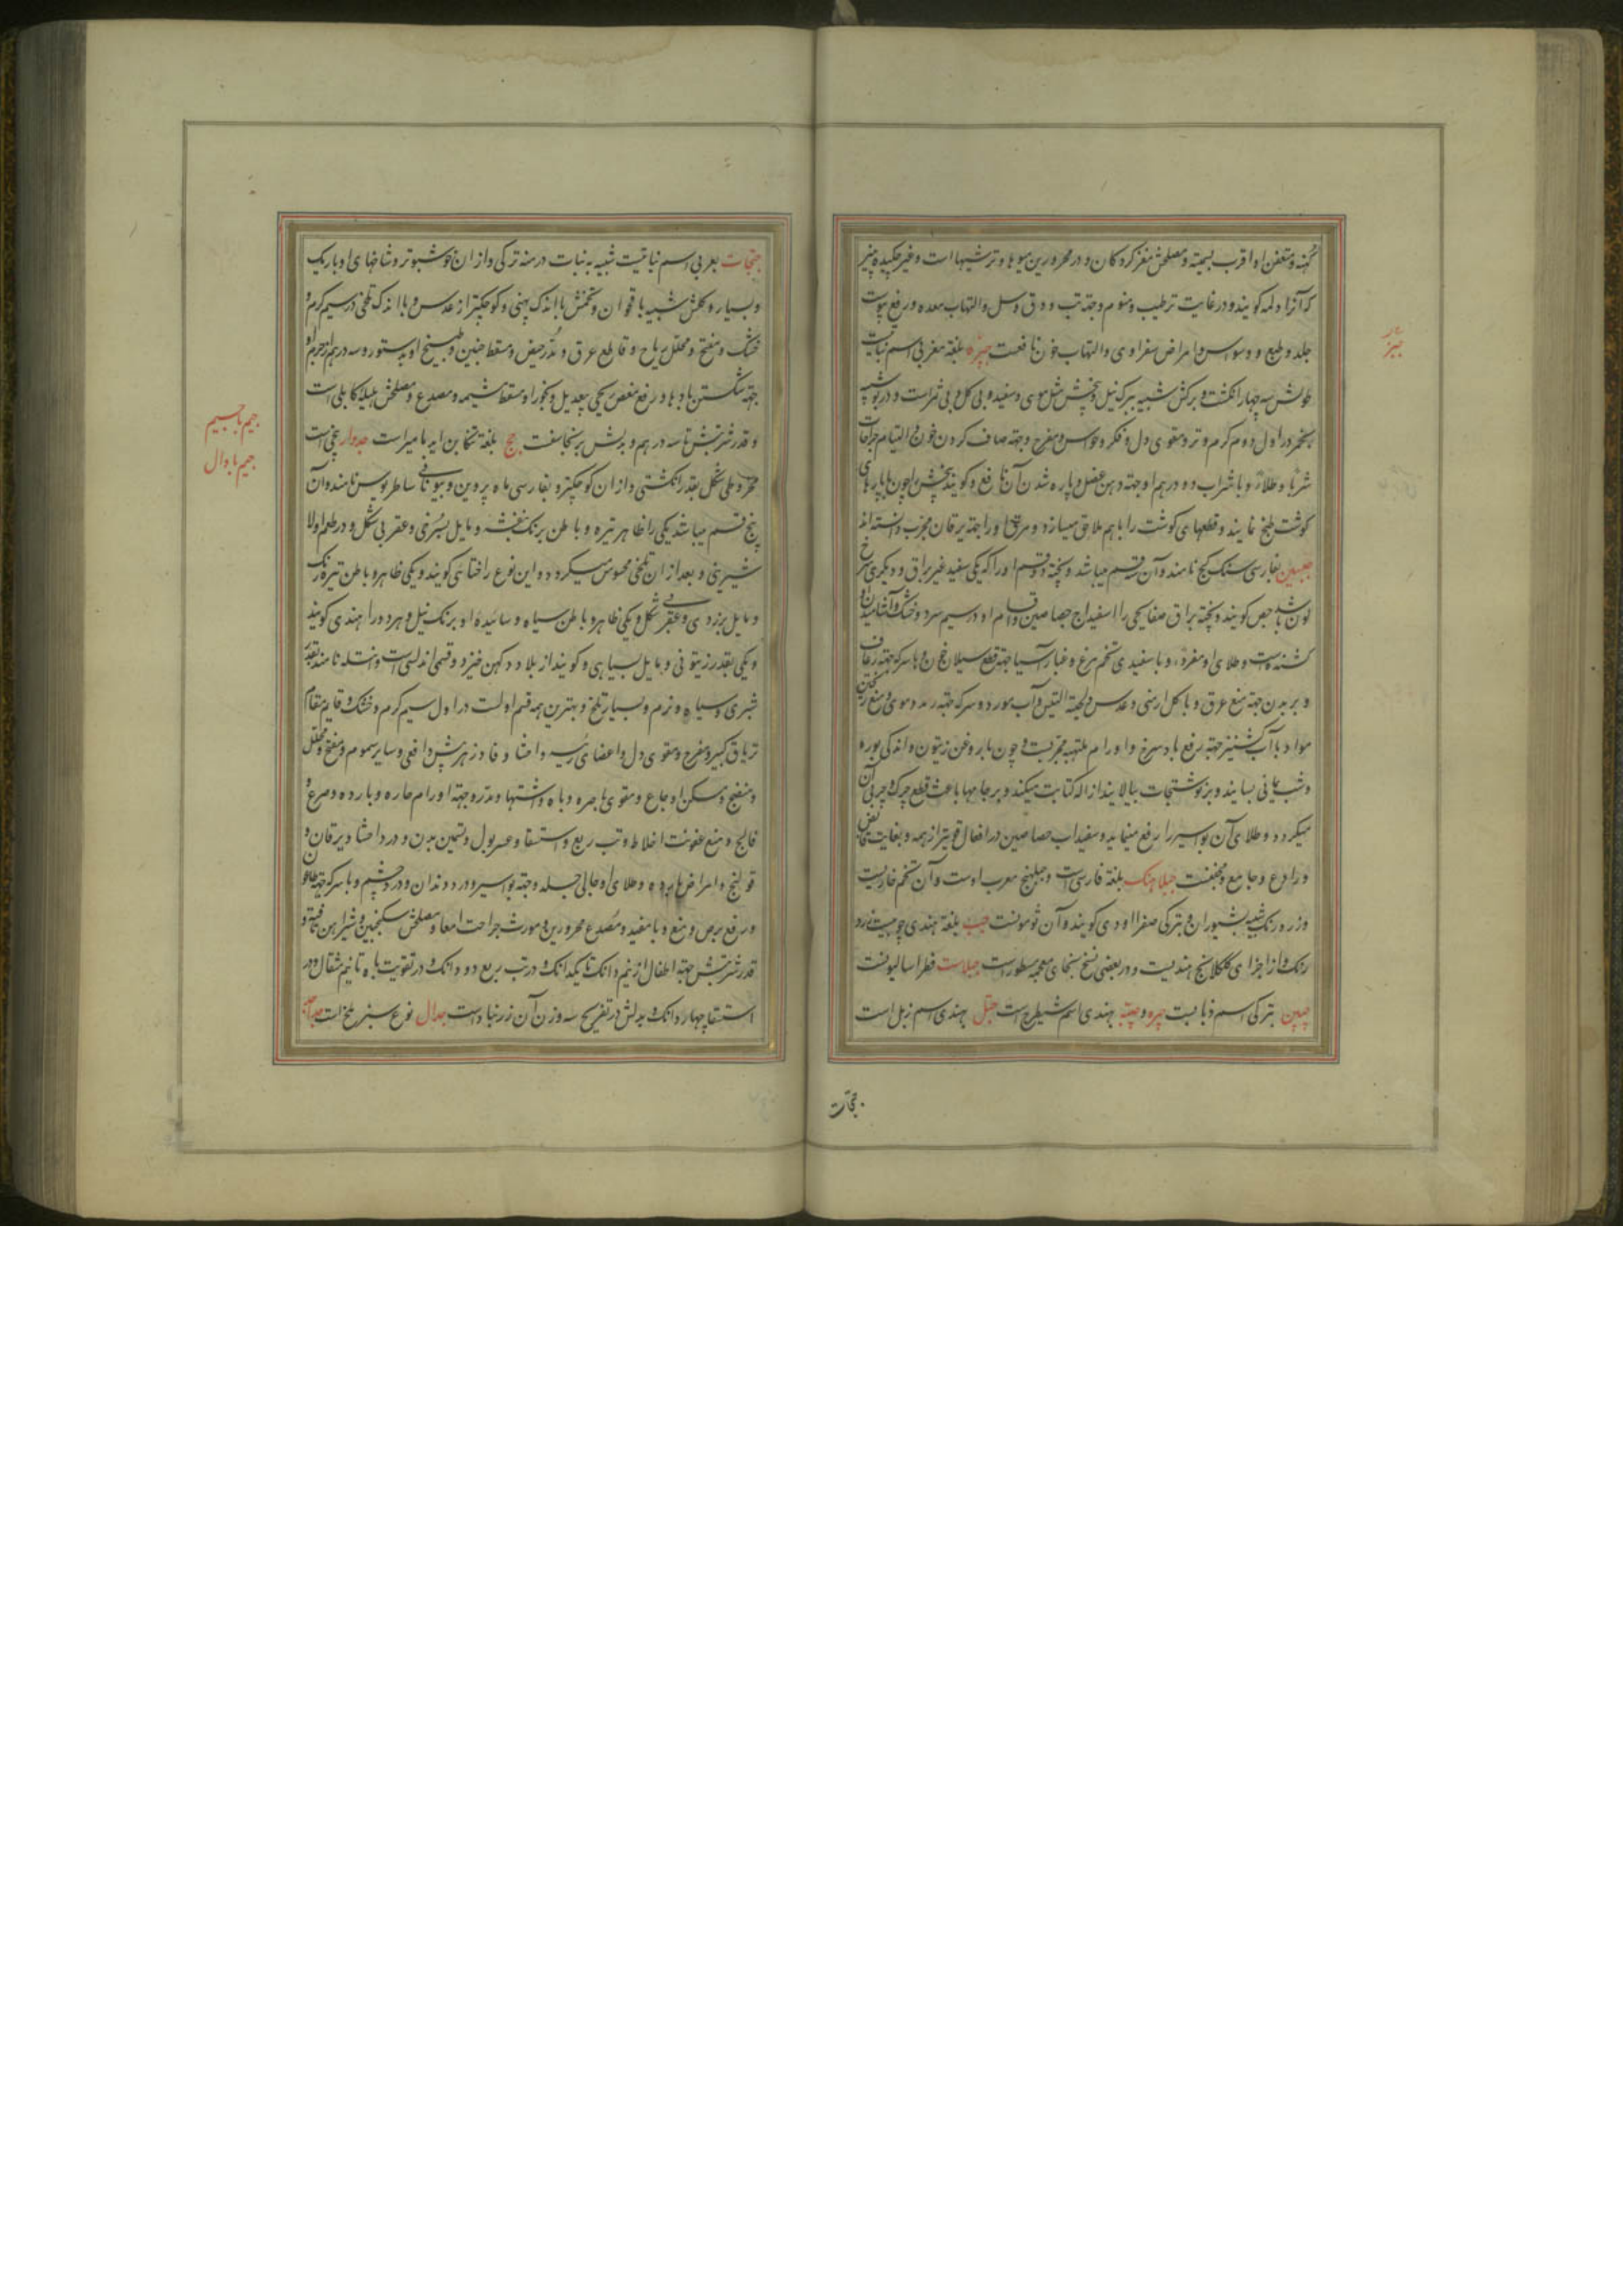 کهنه و متعفن او اقرب بسمیته و مصلحش مغز کردکان و در محرورین میوها و ترشیها است و غیر چکیده پنیر
که آنرا دلمه کویند و در غایت ترطیب و منوم و جهته تب و دق و سل و التهاب معده و رفع یبوست
جلد و طبع و وسواس و امراض صفراوی و التهاب خون نافعست جبره بلغة مغربی اسم نباتیست
طولش سه چهار انکشت و برکش شبیه ببرک نیل و بیخش مثل موی و سفید و بی کل و بی ثمر است و در بو شبیه
در اول دوم کرم و تر و مقوی دل و فکر و حواس و مفرح و جهته صاف کردن خون و التیام جراحات
شربا و طلاءً و با شراب دو درهم او جهته وهن عضل و پاره شدن آن نافع و کویند بیخش چون با پارهای
کوشت طبخ نمایند و قطعهای کوشت را باهم ملاقی میسازد و مرق او را جهته یرقان مجرب دانسته اند
جبسین بفارسی سنک کچ نامند و آن سه قسم میباشد و پخته دو قسم او را که یکی سفید غیر براق و دیکری سرخ
لون باشد جص کویند و پخته براق صفایحی را اسفیداج جصاصین و اقسام او در سیم سرد و خشک و آشامیدن او
کشنده است و طلای او مفرد و با سفیدی تخم مرغ و غبار آسیا جهته قطع سیلان خون و با سرکه جهته رعاف
و بر بدن جهته منع عرق و با کل ارمنی و عدس و لحیة التیس و آب مورد و سرکه جهته رمد دموی و منع ریختن
مواد و با آب کشنیز جهته رفع باد سرخ و اورام ملتهبه مجربست و چون با روغن زیتون و اندکی بوره
و شب یمانی بسایند و بر نوشتجات بیالایند ازاله کتابت میکند و بر جامها باعث قطع چرک و چربی آن
میکردد و طلای آن بواسیر را رفع مینماید و سفیداب جصاصین در افعال قویتر از همه و بغایت قابض
و رادع و جامع و مجففست جبلاهنک بلغة فارسی است و جبلهنج معرب اوست و آن تخم خاریست
و زرد رنک شبیه بشبوران و بترکی صفرا اودی کویند و آن ثومونست جب بلغة هندی چوبیست زرد
رنک و از اجزای کلکلانج هندیست و در بعضی نسخ بخای معجمه مسطور است جبلاست فطراسالیونست
چپین بترکی اسم ذبابست چپره و چپته بهندی اسم شیطرج است جپل بهندی اسم زبل است
جثجاث
جثجاث بعربی اسم نباتیست شبیه به نبات درمنه ترکی و از آن خوشبوتر و شاخهای او باریک
و بسیار و کلش شبیه باقحوان و تخمش با اندک پهنی و کوچکتر از عدس و با اندک تلخی در سیم کرم و
خشک و مفتح و محلل ریاح و قاطع عرق و مدر حیض و مسقط جنین و طبیخ او بدستور و سه درهم از جرم او
جهته شکستن بادها و رفع مغص ریحی بیعدیل و بخور او مسقط مشیمه و مصدع و مصلحش هلیله کابلی است
و قدر شربتش تا سه درهم و بدلش برنجاسفست جج بلغة تنکابن اسم بامیر است جدوار بیخی است
مخروطی شکل بقدر انکشتی و از آن کوچکتر و بفارسی ماه پروین و بیونانی ساطریوس نامند و آن
پنج قسم میباشد یکی را ظاهر تیره و باطن برنک بنفشه و مایل بسرخی و عقربی شکل و در طعم اولا
شیرینی و بعد از آن تلخی محسوس میکردد و این نوع را ختائی کویند و یکی ظاهر و باطن تیره رنک
و مایل بزردی و عقربی شکل و یکی ظاهر و باطن سیاه و سائیده او برنک نیل و هر دو را هندی کویند
و یکی بقدر زیتونی و مایل بسیاهی و کویند از بلاد دکهن خیزد و قسمی اندلسی است و انتله نامند بقدر
شبری و سیاه و نرم و بسیار تلخ و بهترین همه قسم اولست در اول سیم کرم و خشک و قایم مقام
تریاق کبیر و مفرح و مقوی دل و اعضای رئیسه و احشا و فادزهر بیش و افعی و سایر سموم و مفتح و محلل
و منضج و مسکن اوجاع و مقوی باصره و باه و اشتها و مدر و جهته اورام حاره و بارده و صرع و
فالج و منع عفونت اخلاط و تب ربع و استسقا و عسر بول و تسمین بدن و درد احشا و یرقان و
قولنج و امراض بارده و طلای او جالی جلد و جهته بواسیر و درد دندان و درد چشم و با سرکه جهته طاعون
و رفع برص و منع وبا مفید و مصدع محرورین و مورث جراحت امعا و مصلحش سکنجبین و شیر
قدر شربتش جهته اطفال از نیم دانک تا یکدانک و در تب ربع دو دانک و در تقویت باه تا نیم مثقال و در
استسقا چهار دانک و بدلش در تفریح سه وزن آن زرنباد است جدال نوع سبز بلخ است
جیم با جیم
جیم با دال